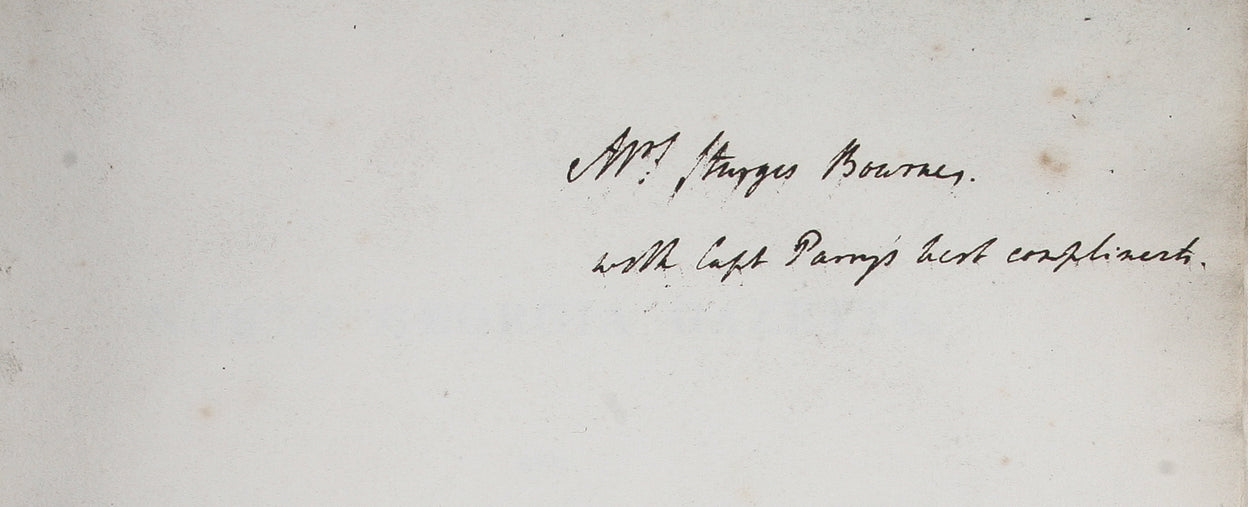 Mrs Sturges Bourne.
with Capt Parry's best compliments.